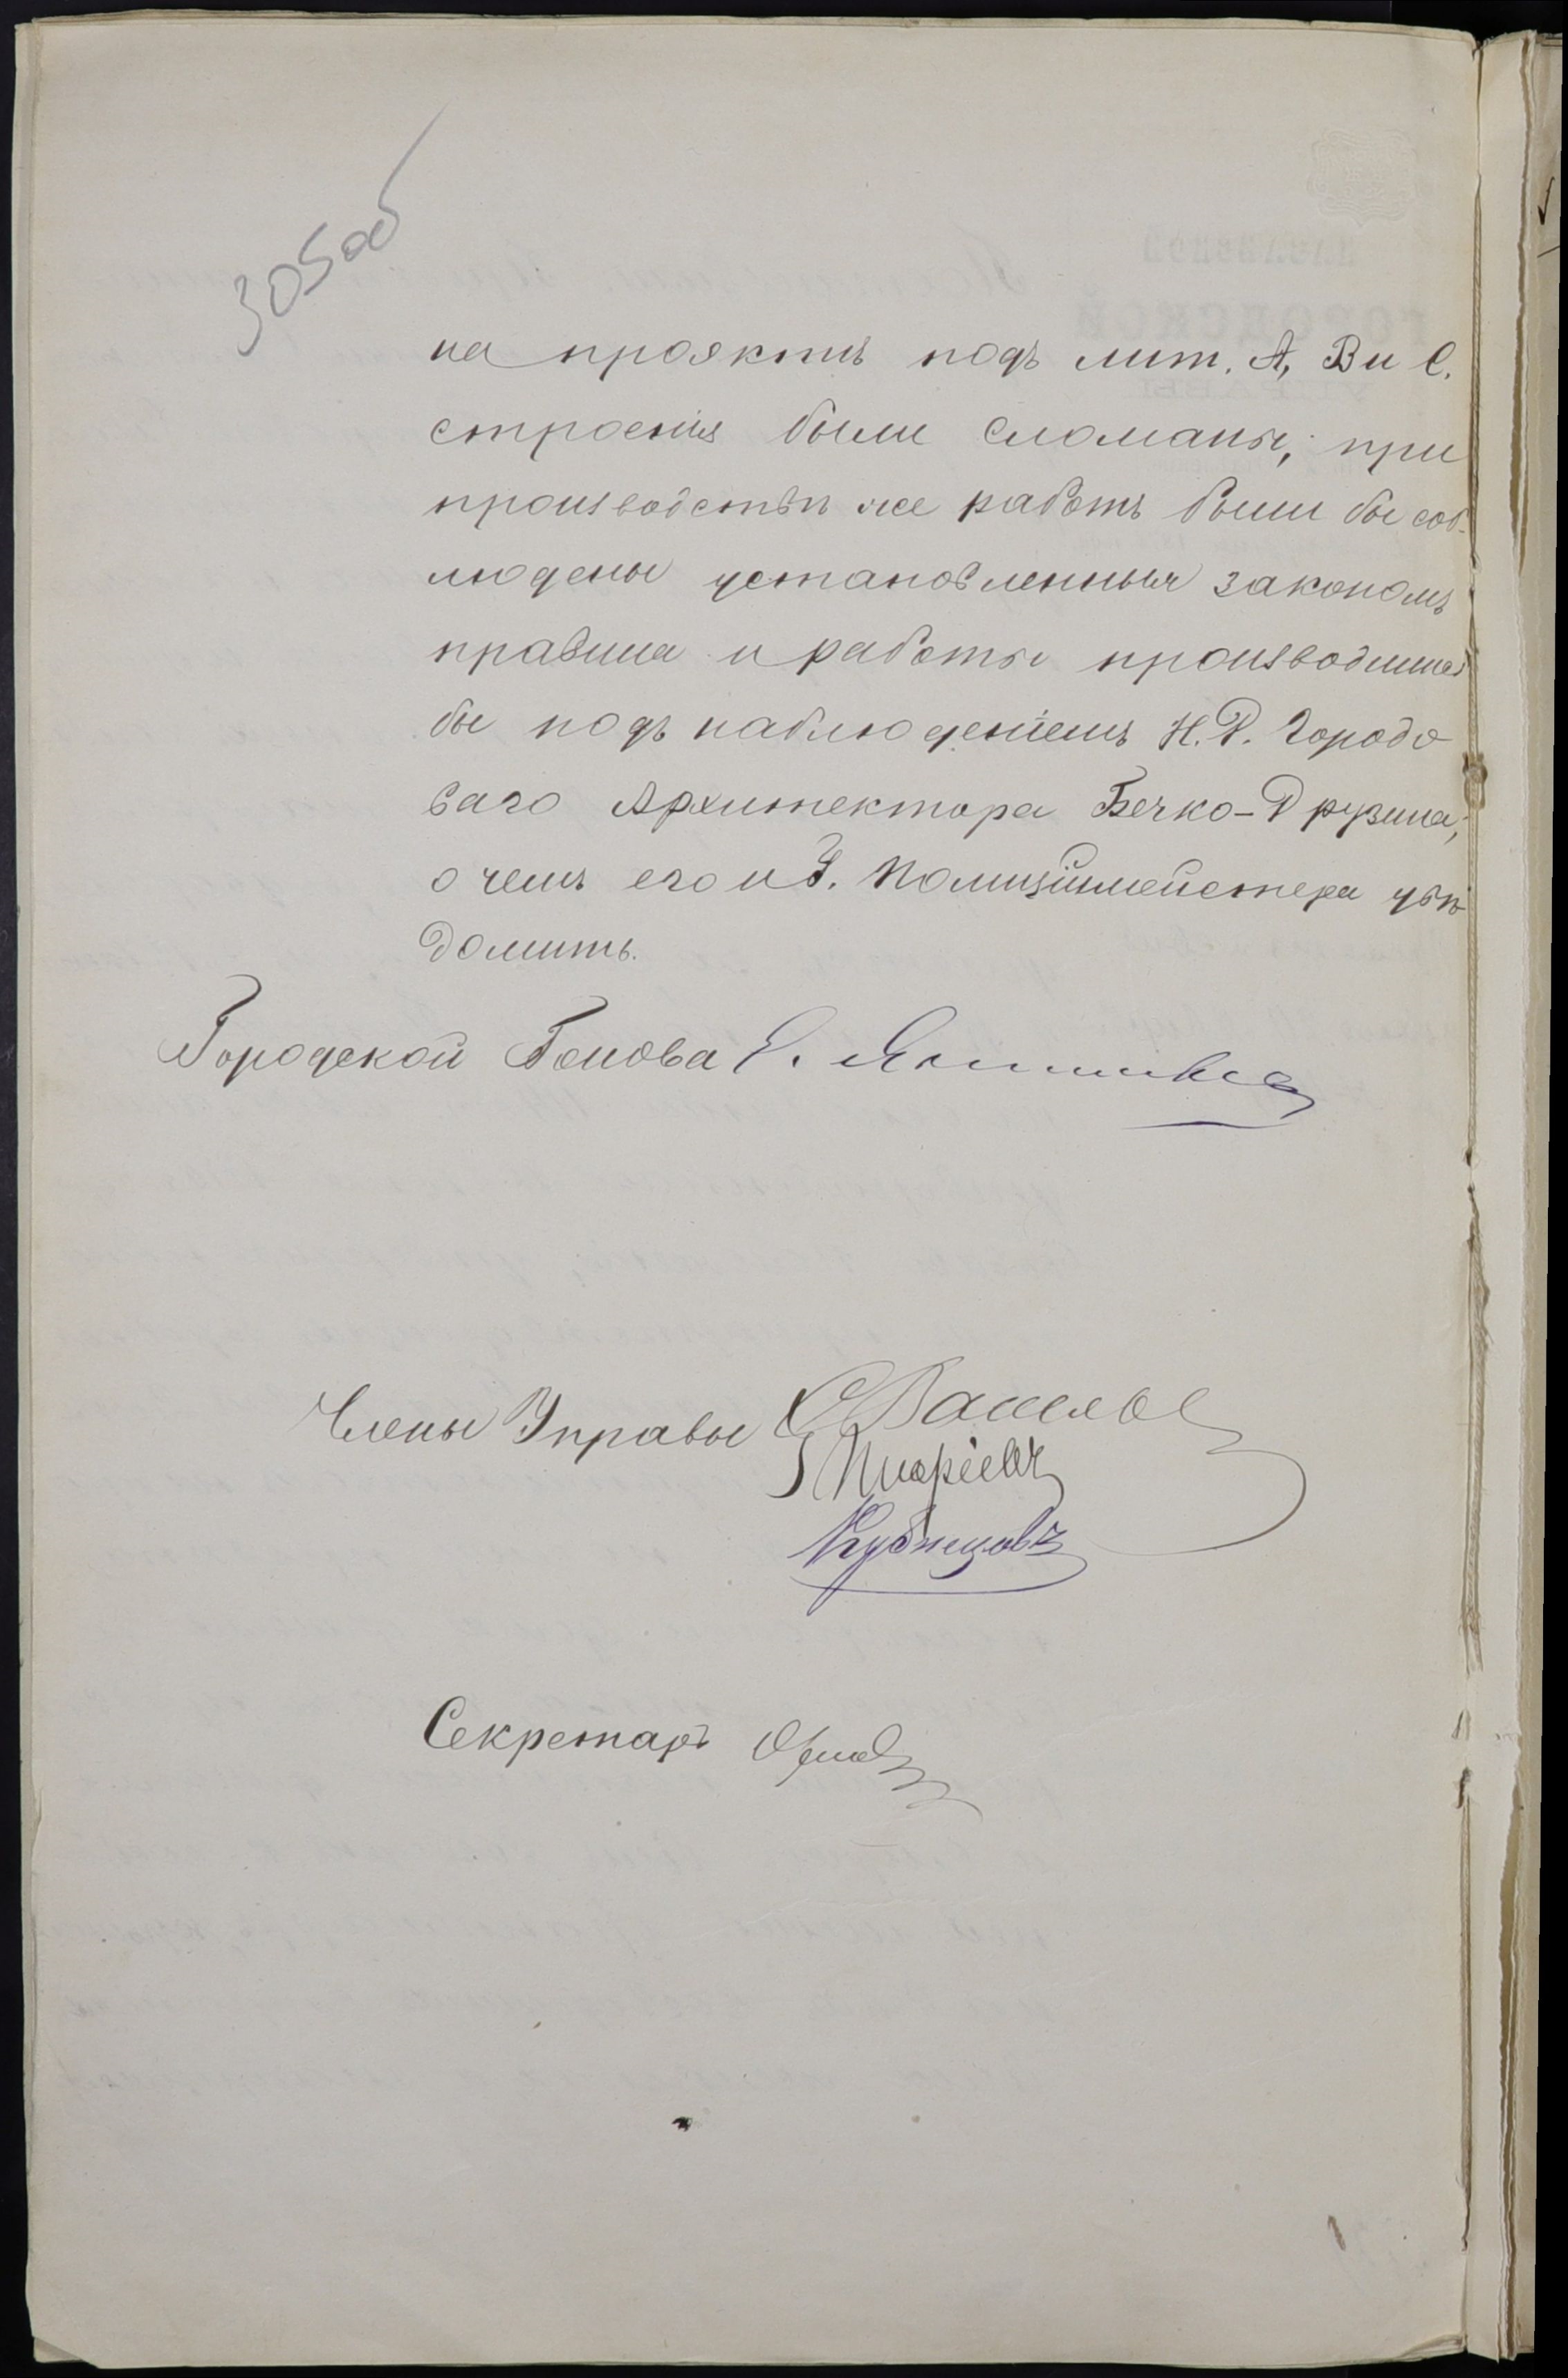 305 об
на проэктѣ подъ лит. А, В и С.
строенія были сломаны; при
производствѣ же работъ были бы соб-
людены установленныя закономъ
правила и работы производились
бы подъ наблюденіемъ И. Д. Городо
ваго Архитектора Бечко-Друзина,
о чемъ его и Г. Полиціймейстера увѣ
домить.
Городской Голова
Члены Управы
Кузнецовъ
Секретарь